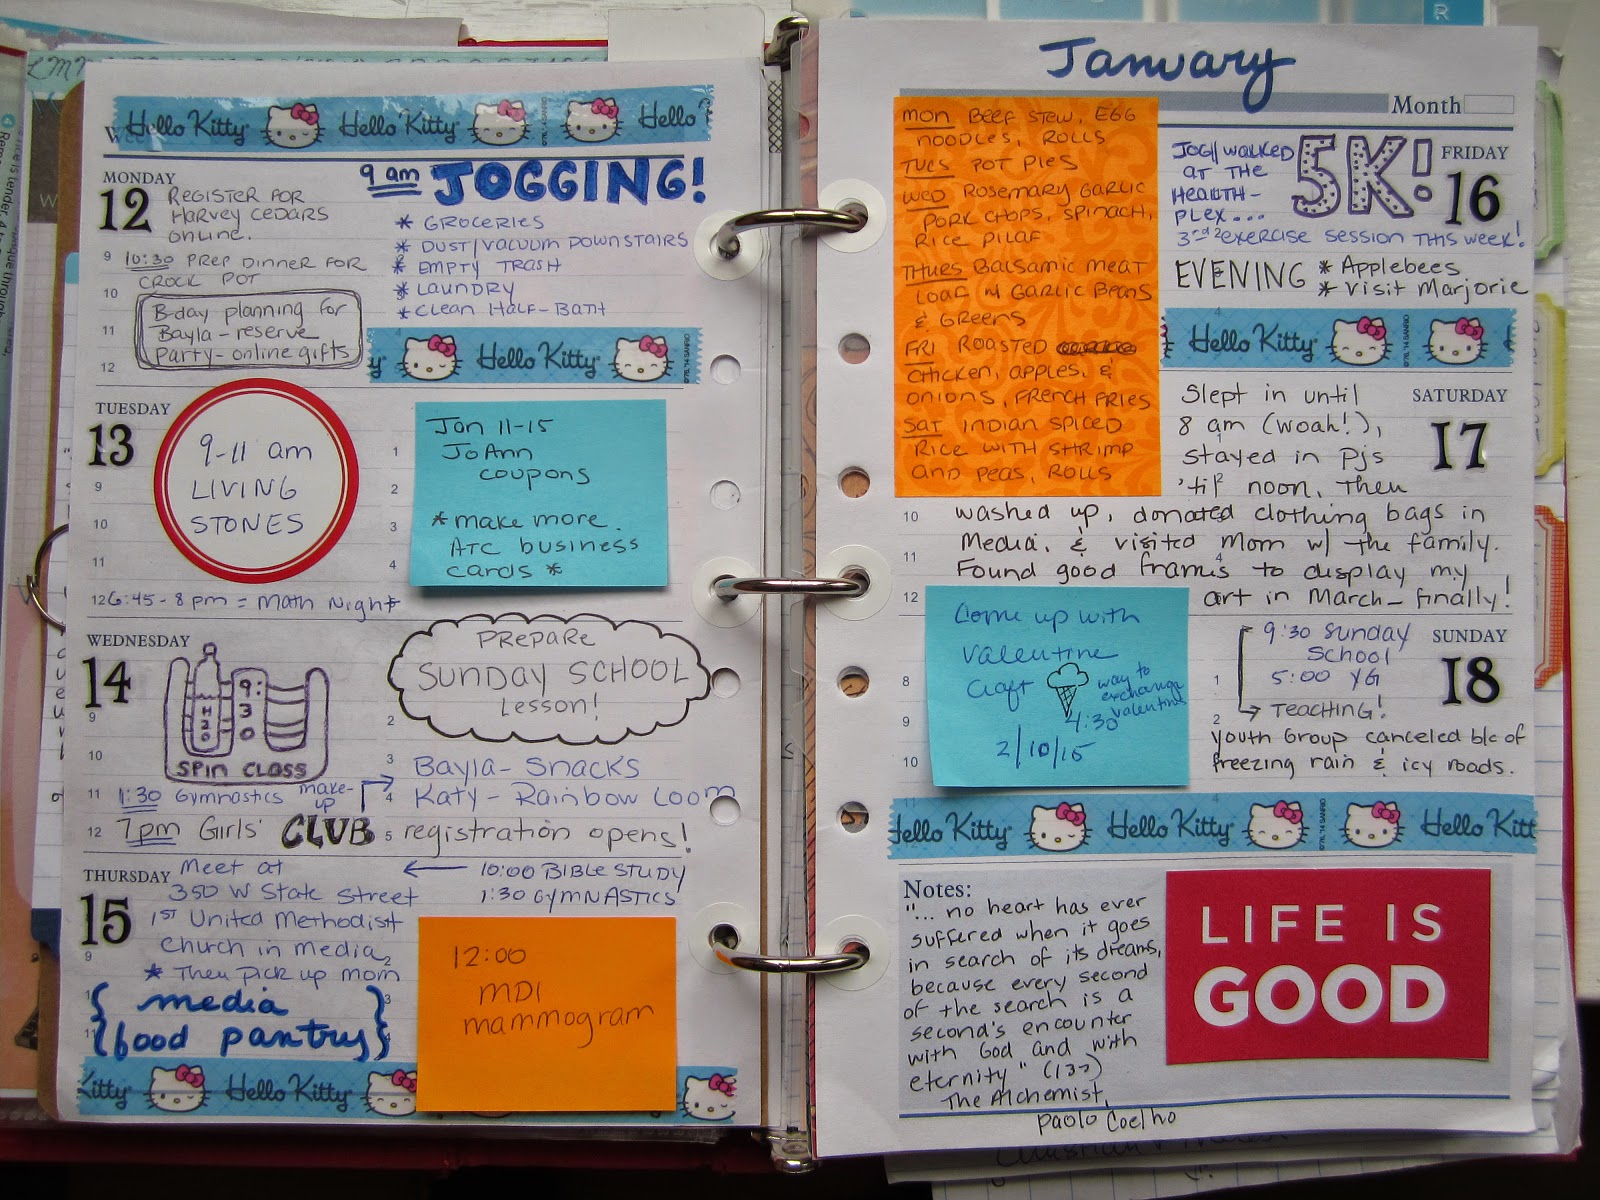 Hello Kitty Hello Kitty Hello
MONDAY
12
REGISTER FOR
HARVEY CEDARS
ONLINE.
9 am JOGGING!
* GROCERIES
* DUST/VACUUM DOWNSTAIRS
* EMPTY TRASH
* LAUNDRY
* CLEAN HALF-BATH
9 10:30 PREP DINNER FOR
CROCK POT
10
B-day planning for
11 Bayla - reserve
party - online gifts
12
Hello Kitty
TUESDAY
13
9-11 am
LIVING
STONES
9
10
11
1
2
3
4
Jan 11-15
JoAnn
coupons
* make more
ATC business
cards *
12 6:45 - 8 pm = Math Night
WEDNESDAY
14
H2O
9:30
SPIN CLASS
PREPARE
SUNDAY SCHOOL
Lesson!
9
10
2
3
Bayla - Snacks
4 Katy - Rainbow Loom
11 1:30 Gymnastics make-up
12 7pm Girls' CLUB 5 registration opens!
THURSDAY
15
Meet at
350 W State Street
1st United Methodist
Church in Media
* Then pick up mom
{ media
food pantry }
10:00 BIBLE STUDY
1:30 GYMNASTICS
12:00
MDI
mammogram
Kitty Hello Kitty
January
Month
MON BEEF STEW, EGG
NOODLES, ROLLS
TUES POT PIES
WED ROSEMARY GARLIC
PORK CHOPS, SPINACH,
RICE PILAF
THURS BALSAMIC MEAT
LOAF W GARLIC BEANS
& GREENS
FRI ROASTED
CHICKEN, APPLES, &
ONIONS, FRENCH FRIES
SAT INDIAN SPICED
RICE WITH SHRIMP
AND PEAS, ROLLS
FRIDAY
16
JOG/WALKED
AT THE
HEALTH-
PLEX...
5K!
3rd exercise session this week!
EVENING * Applebees
* Visit Marjorie
Hello Kitty
SATURDAY
17
Slept in until
8 am (woah!),
stayed in pjs
'til noon, then
10 washed up, donated clothing bags in
11 Media, & visited Mom w/ the family.
Found good frames to display my
12 art in March - finally!
Come up with
valentine
craft
way to
exchange
valentines
4:30
2/10/15
SUNDAY
18
9:30 Sunday
School
5:00 YG
TEACHING!
8
9
10
1
2
Youth Group canceled b/c of
freezing rain & icy roads.
Hello Kitty Hello Kitty Hello Kitt
Notes:
"... no heart has ever
suffered when it goes
in search of its dreams,
because every second
of the search is a
second's encounter
with God and with
eternity" (137)
The Alchemist,
Paolo Coelho
LIFE IS
GOOD